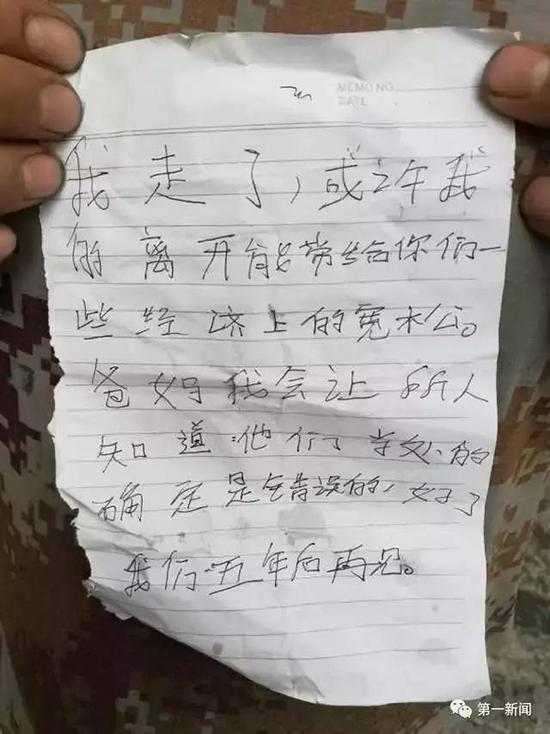 MEMO NO.
DATE
我走了,或许我
的离开能带给你们一
些经济上的宽松。
爸妈我会让所人
知道他们学校的
确定是错误的,好了
我们五年后再见。
第一新闻